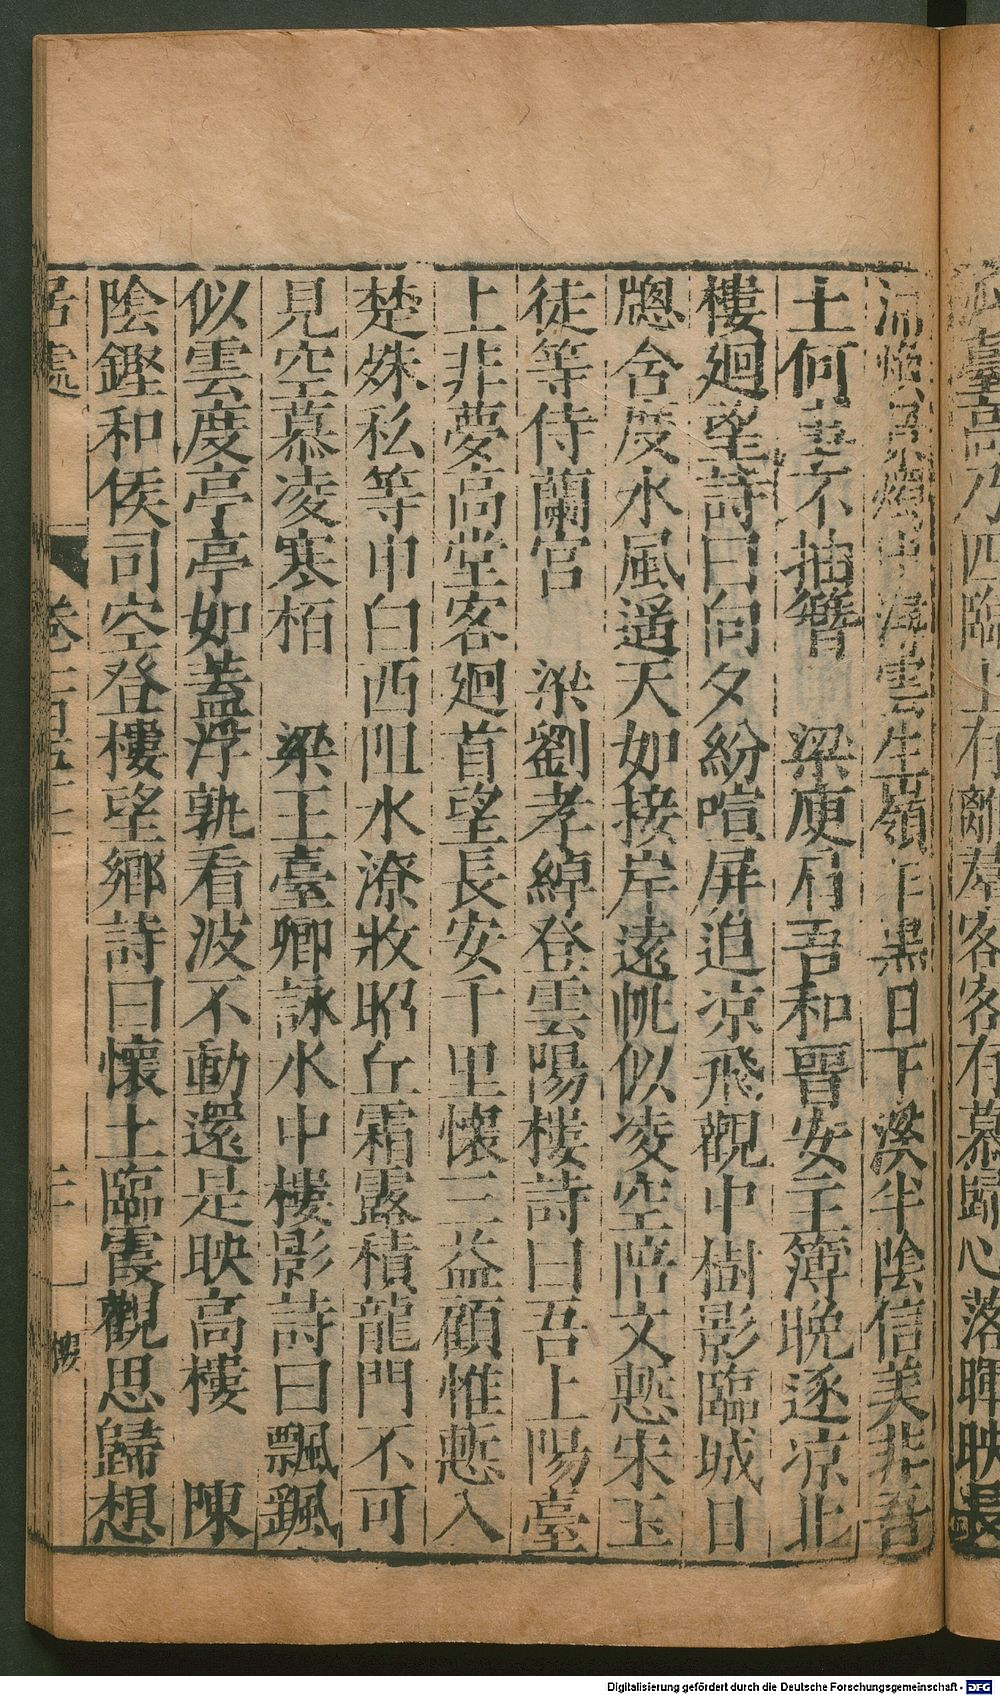 臺高乃四臨上有離
客客有慕歸心落暉映長
雲生嶺乍黑日下溪半陰信美非吾
土何事不抽簪　梁庾肩吾和晉安王簿晚逐凉北
樓廻望詩曰向夕紛喧屏追凉飛觀中樹影臨城日
窻含度水風遥天如接岸遠帆似凌空陪文慙宋玉
徒等侍蘭宮　梁劉孝綽登雲陽樓詩曰吾上陽臺
上非夢高堂客廻首望長安千里懷三益顧惟慙入
楚殊私等申白西阻水潦收昭丘霜露積龍門不可
見空慕凌寒栢　梁王臺卿詠水中樓影詩曰飄飄
似雲度亭亭如蓋浮孰看波不動還是映高樓　陳
陰鏗和侯司空登樓望鄉詩曰懷土臨霞觀思歸想
居處
卷
樓
Digitalisierung gefördert durch die Deutsche Forschungsgemeinschaft - DFG